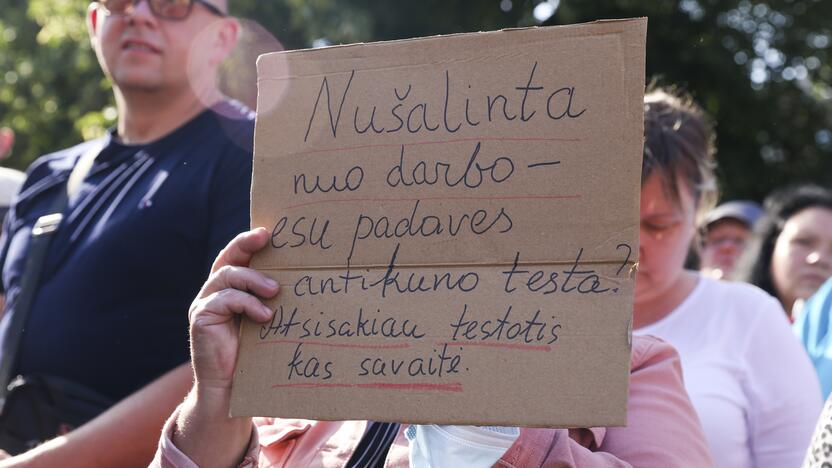 Nušalinta
nuo darbo –
esu padaves
antikuno testa?
Atsisakiau testotis
kas savaitė.